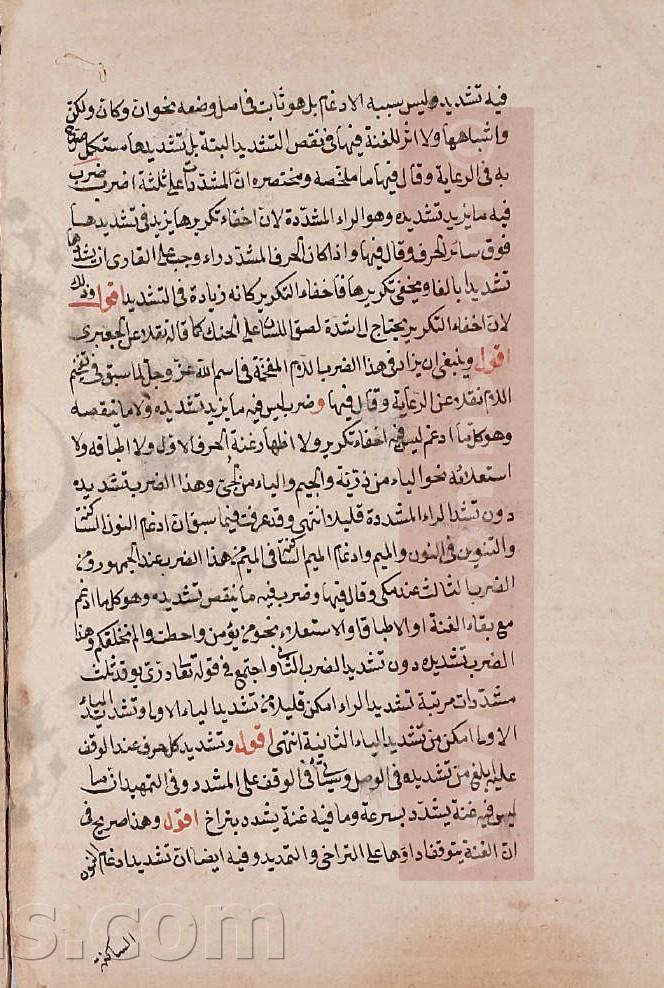 فيه تشديد وليس سببه الادغام بل هو ثابت في اصل وضعه نحو ان وكان ولكن
واشباهها ولا اثر للغنة فيها في نقص التشديد البتة بل تشديدها مستكمل صرح
به في الرعاية وقال فيها ما ملخصه ومختصره ان المشددات على ثلثة اضرب ضرب
فيه ما يزيد تشديده وهو الراء المشددة لان اخفاء تكريرها يزيد في تشديدها
فوق سائر الحرف وقال فيها واذا كان الحرف المشدد راء وجب على القارئ ان يشددها
تشديدا بالغا ويخفي تكريرها فاخفاء التكرير كانه زيادة في التشديد اقول وذلك
لان اخفاء التكرير يحتاج الى شدة لصق اللسان على الحنك كما قاله نقلا عن الجعبري
اقول وينبغي ان يزاد في هذا الضرب اللام المفخمة في اسم الله عز وجل لما سبق في تفخيم
اللام نقلا عن الرعاية وقال فيها وضرب ليس فيه ما يزيد تشديده ولا ما ينقصه
وهو كل ما ادغم ليس فيه اخفاء تكرير ولا اظهار غنة الحرف الاول ولا اطباقه ولا
استعلائه نحو الياء من ذرية والجيم والياء من لجي وهذا الضرب تشديده
دون تشديد الراء المشددة قليلا انتهى وقد عرفت فيما سبق ان ادغام النون الساكنة
والتنوين في النون والميم وادغام الميم الساكنة في الميم من هذا الضرب عند الجمهور ومن
الضرب الثالث عند مكي وقال فيها وضرب فيه ما ينقص تشديده وهو كل ما ادغم
مع بقاء الغنة او الاطباق او الاستعلاء نحو من يؤمن واحطت والم نخلقكم وهذا
الضرب تشديده دون تشديد الضرب الثاني واجتمع في قوله تعالى دري يوقد ثلث
مشددات مرتبة تشديد الراء امكن قليلا من تشديد الياء الاولى وتشديد الياء
الاولى امكن من تشديد الياء الثانية انتهى اقول وتشديد كل حرف عند الوقف
عليه ابلغ من تشديده في الوصل وسيأتي في الوقف على المشدد وفي التمهيد ان ما
ليس فيه غنة يشدد بسرعة وما فيه غنة يشدد بتراخ اقول وهذا صريح في
ان الغنة يتوقف اداؤها على التراخي والتمديد وفيه ايضا ان تشديد ادغام النون
الساكنة
ns.com